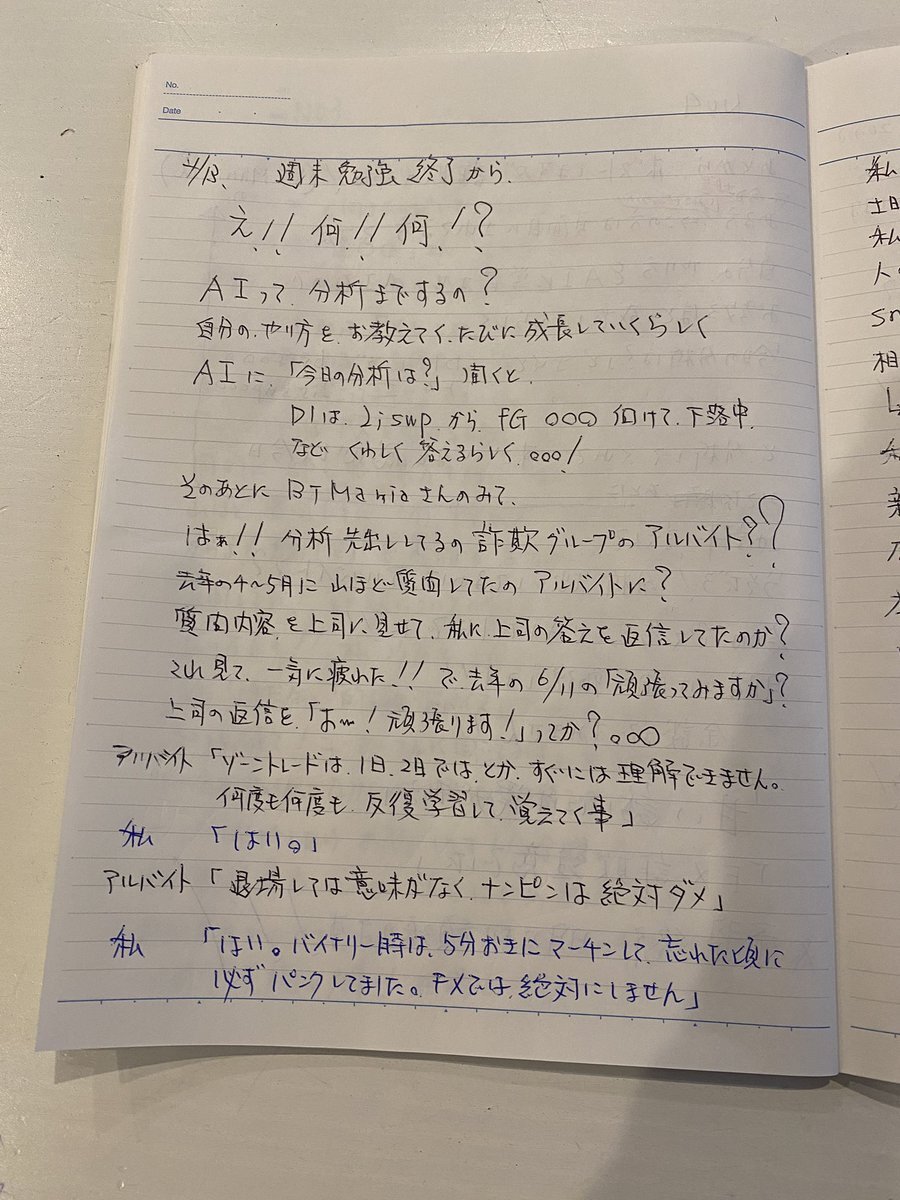 No.
Date
4/13、 週末勉強終了から、
え!! 何!! 何!?
AIって、分析までするの?
自分の、やり方を、お教えてく、たびに成長していくらしく
AIに、「今日の分析は?」聞くと、
D1は、 から、fG ○○○ 向けて、下落中、
など くわしく答えるらしく、。。。!
そのあとに BTMariaさんのみて、
はぁ!! 分析 先出ししてるの 詐欺グループの アルバイト??
去年の4〜5月に 山ほど質問してたの アルバイトに?
質問内容、を上司に見せて、私に上司の答えを返信してたのか?
これ見て、一気に疲れた!! で、去年の 6/11の「頑張ってみますか」?
上司の返信を、「あ〜!頑張ります!」ってか?。。。
アルバイト 「ゾーントレードは、1日、2日では、とか、すぐには理解できません。
何度も何度も、反復学習して、覚えてく事」
私 「はい。」
アルバイト 「退場しては意味がなく、ナンピンは絶対ダメ」
私 「はい。バイナリー時は、5分おきにマーチンして、忘れた頃に
必ずパンクしてました。FXでは、絶対にしません」
私
土日
私
人の
sn
相
L
新